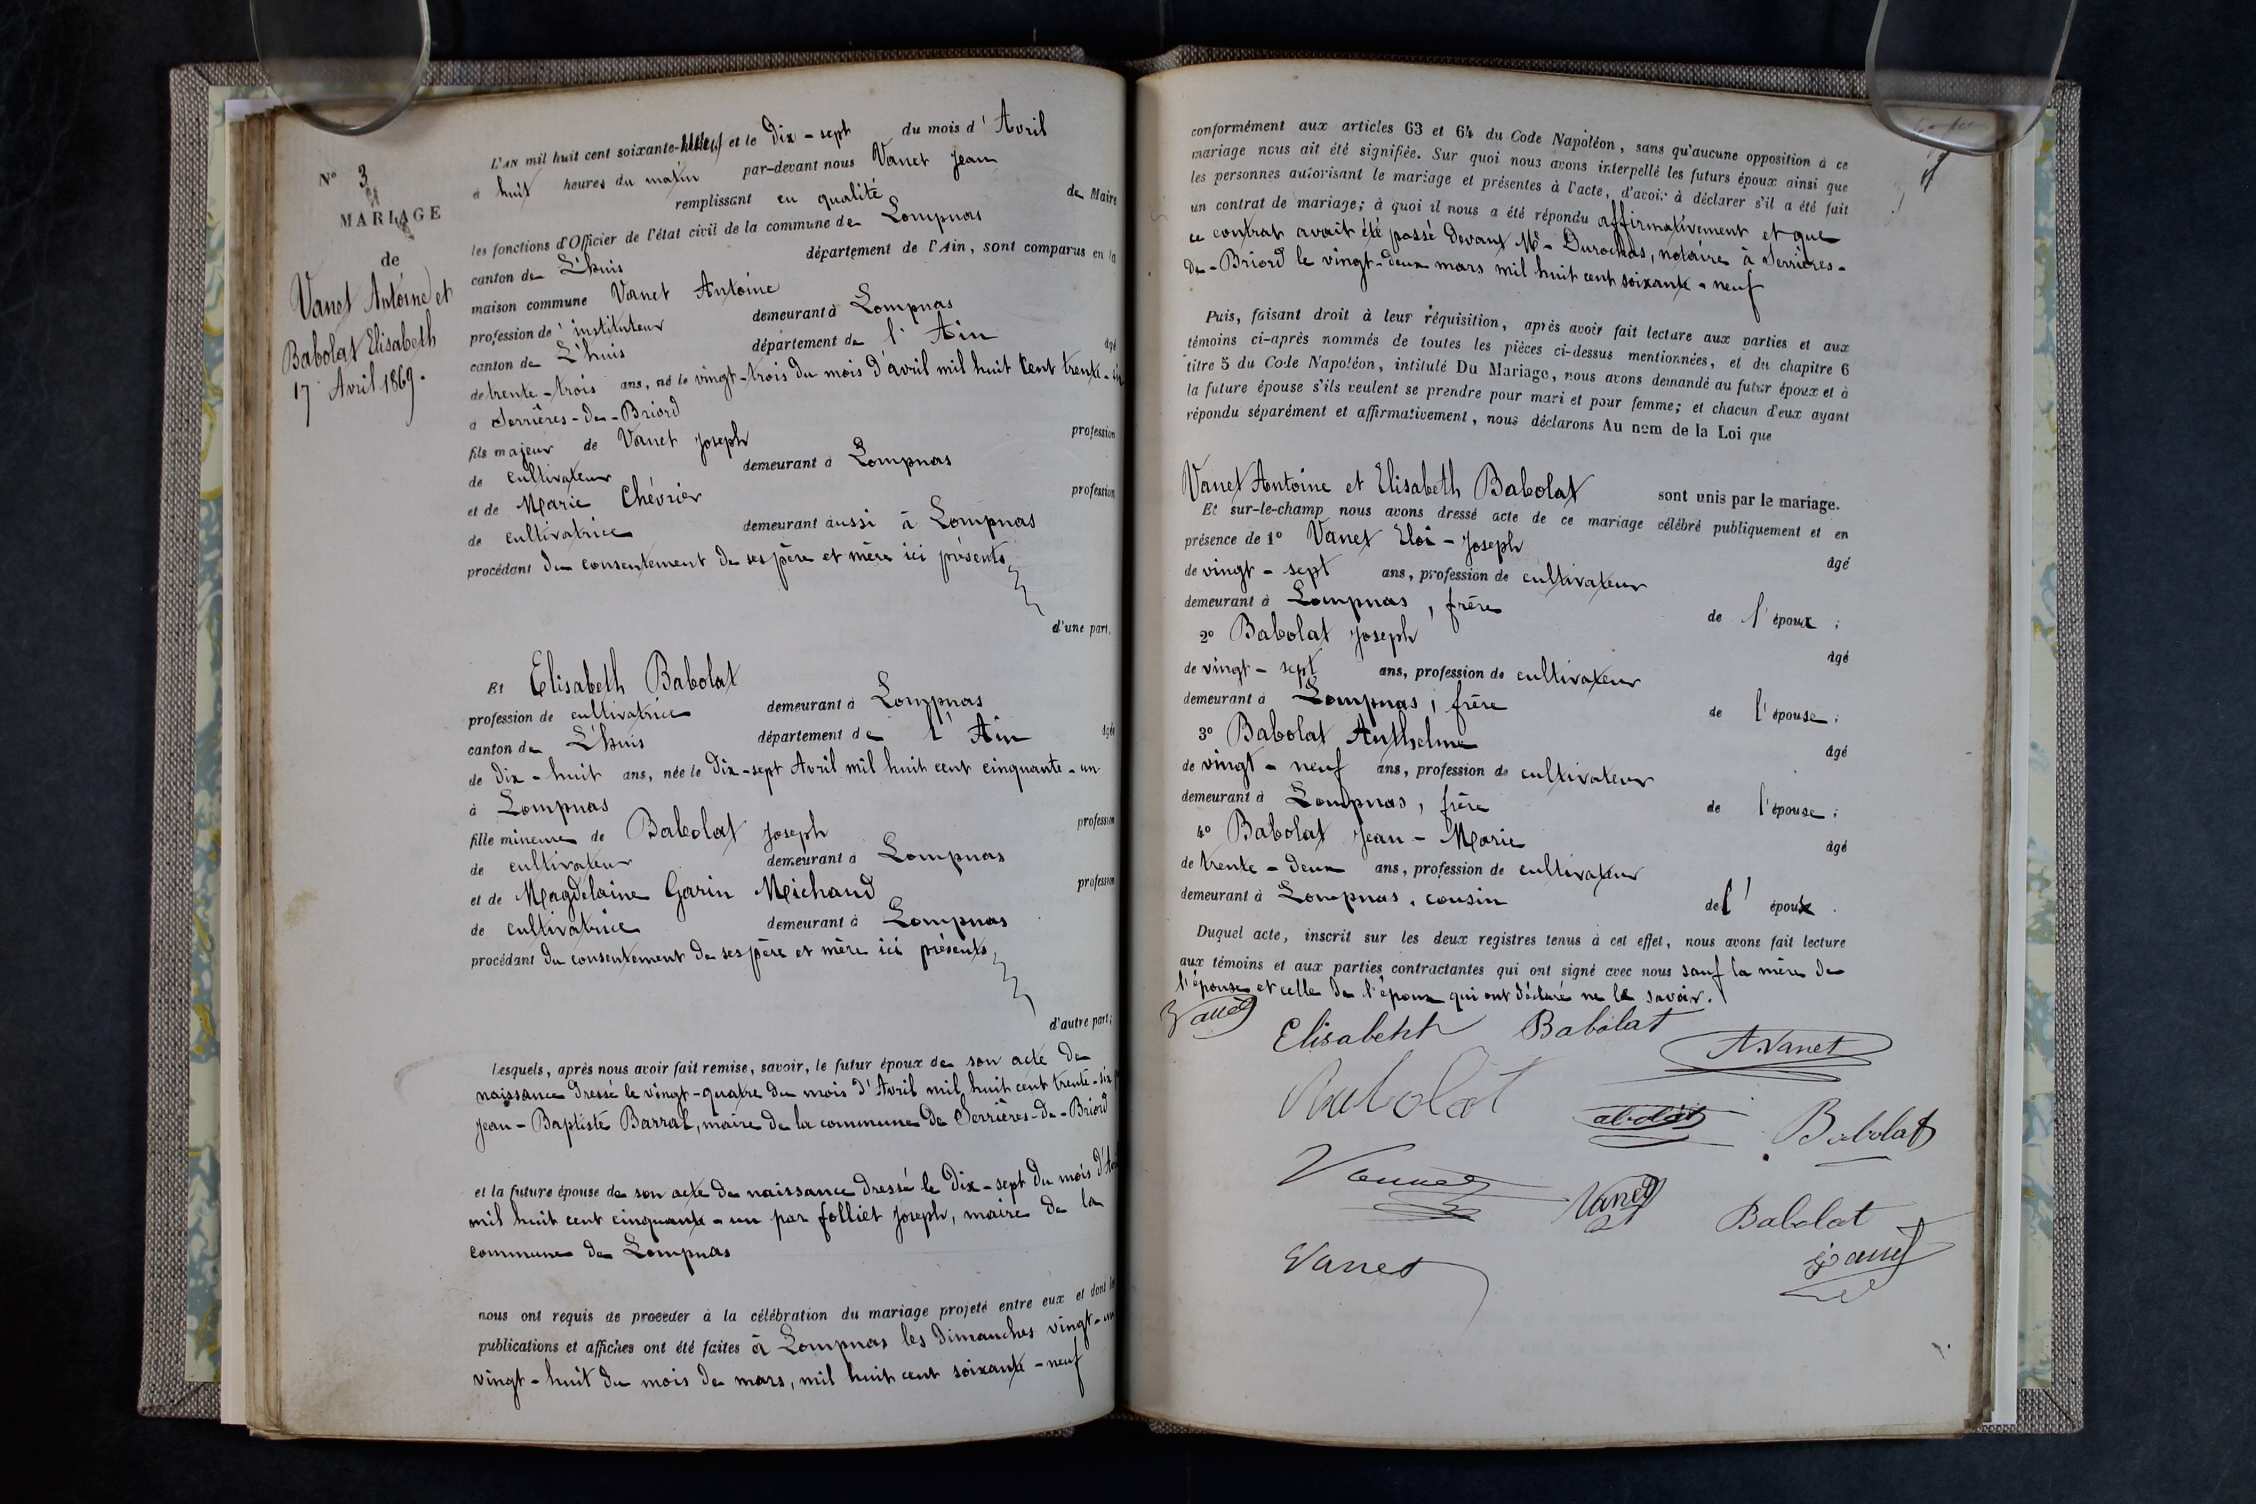 N° 3
MARIAGE
de
Vanet Antoine et
Babolat Elisabeth
17 Avril 1869.
L'AN mil huit cent soixante-neuf et le Dix-sept du mois d'Avril
à huit heures du matin par-devant nous Vanet Jean
remplissant en qualité de Maire
les fonctions d'Officier de l'état civil de la commune de Lompnas
canton de L'huis département de l'Ain, sont comparus en la
maison commune Vanet Antoine
profession d'instituteur demeurant à Lompnas
canton de L'huis département de l'Ain âgé
de trente-trois ans, né le vingt-trois du mois d'avril mil huit Cent trente-
à Serrières-de-Briord
fils majeur de Vanet Joseph profession
de cultivateur demeurant à Lompnas
et de Marie Chévrier profession
de cultivatrice demeurant aussi à Lompnas
procédant du consentement de ses père et mère ici présents
d'une part,
Et Elisabeth Babolat
profession de cultivatrice demeurant à Lompnas
canton de L'huis département de l'Ain âgée
de Dix-huit ans, née le Dix-sept Avril mil huit cent cinquante-un
à Lompnas
fille mineure de Babolat Joseph profession
de cultivateur demeurant à Lompnas
et de Magdelaine Garin Michaud profession
de cultivatrice demeurant à Lompnas
procédant du consentement de ses père et mère ici présents,
d'autre part;
Lesquels, après nous avoir fait remise, savoir, le futur époux de son acte de
naissance Dressé le vingt-quatre du mois d'Avril mil huit cent trente-six
Jean-Baptiste Barral, maire de la commune de Serrières-de-Briord
et la future épouse de son acte de naissance dressé le Dix-sept du mois d'Avril
mil huit cent cinquante-un par Folliet Joseph, maire de la
commune de Lompnas
nous ont requis de procéder à la célébration du mariage projeté entre eux et dont les
publications et affiches ont été faites à Lompnas les Dimanches vingt-un
vingt-huit du mois de mars, mil huit cent soixante-neuf
conformément aux articles 63 et 64 du Code Napoléon, sans qu'aucune opposition à ce
mariage nous ait été signifiée. Sur quoi nous avons interpellé les futurs époux ainsi que
les personnes autorisant le mariage et présentes à l'acte, d'avoir à déclarer s'il a été fait
un contrat de mariage; à quoi il nous a été répondu affirmativement et que
ce contrat avait été passé devant Me Durochas, notaire à Serrières-
de-Briord le vingt-deux mars mil huit cent soixante-neuf
Puis, faisant droit à leur réquisition, après avoir fait lecture aux parties et aux
témoins ci-après nommés de toutes les pièces ci-dessus mentionnées, et du chapitre 6
titre 5 du Code Napoléon, intitulé Du Mariage, nous avons demandé au futur époux et à
la future épouse s'ils veulent se prendre pour mari et pour femme; et chacun d'eux ayant
répondu séparément et affirmativement, nous déclarons Au nom de la Loi que
Vanet Antoine et Elisabeth Babolat sont unis par le mariage.
Et sur-le-champ nous avons dressé acte de ce mariage célébré publiquement et en
présence de 1° Vanet Eloi-Joseph âgé
de vingt-sept ans, profession de cultivateur
demeurant à Lompnas, frère de l'époux;
2° Babolat Joseph âgé
de vingt-sept ans, profession de cultivateur
demeurant à Lompnas, frère de l'épouse;
3° Babolat Anthelme âgé
de vingt-neuf ans, profession de cultivateur
demeurant à Lompnas, frère de l'épouse;
4° Babolat Jean-Marie âgé
de trente-deux ans, profession de cultivateur
demeurant à Lompnas, cousin de l'époux.
Duquel acte, inscrit sur les deux registres tenus à cet effet, nous avons fait lecture
aux témoins et aux parties contractantes qui ont signé avec nous sauf la mère de
l'épouse et celle de l'époux qui ont déclaré ne le savoir.
Vanet
Elisabeht Babolat
A. Vanet
Babolat
Babolat
Vannet
Vanet
Babolat
Vanet